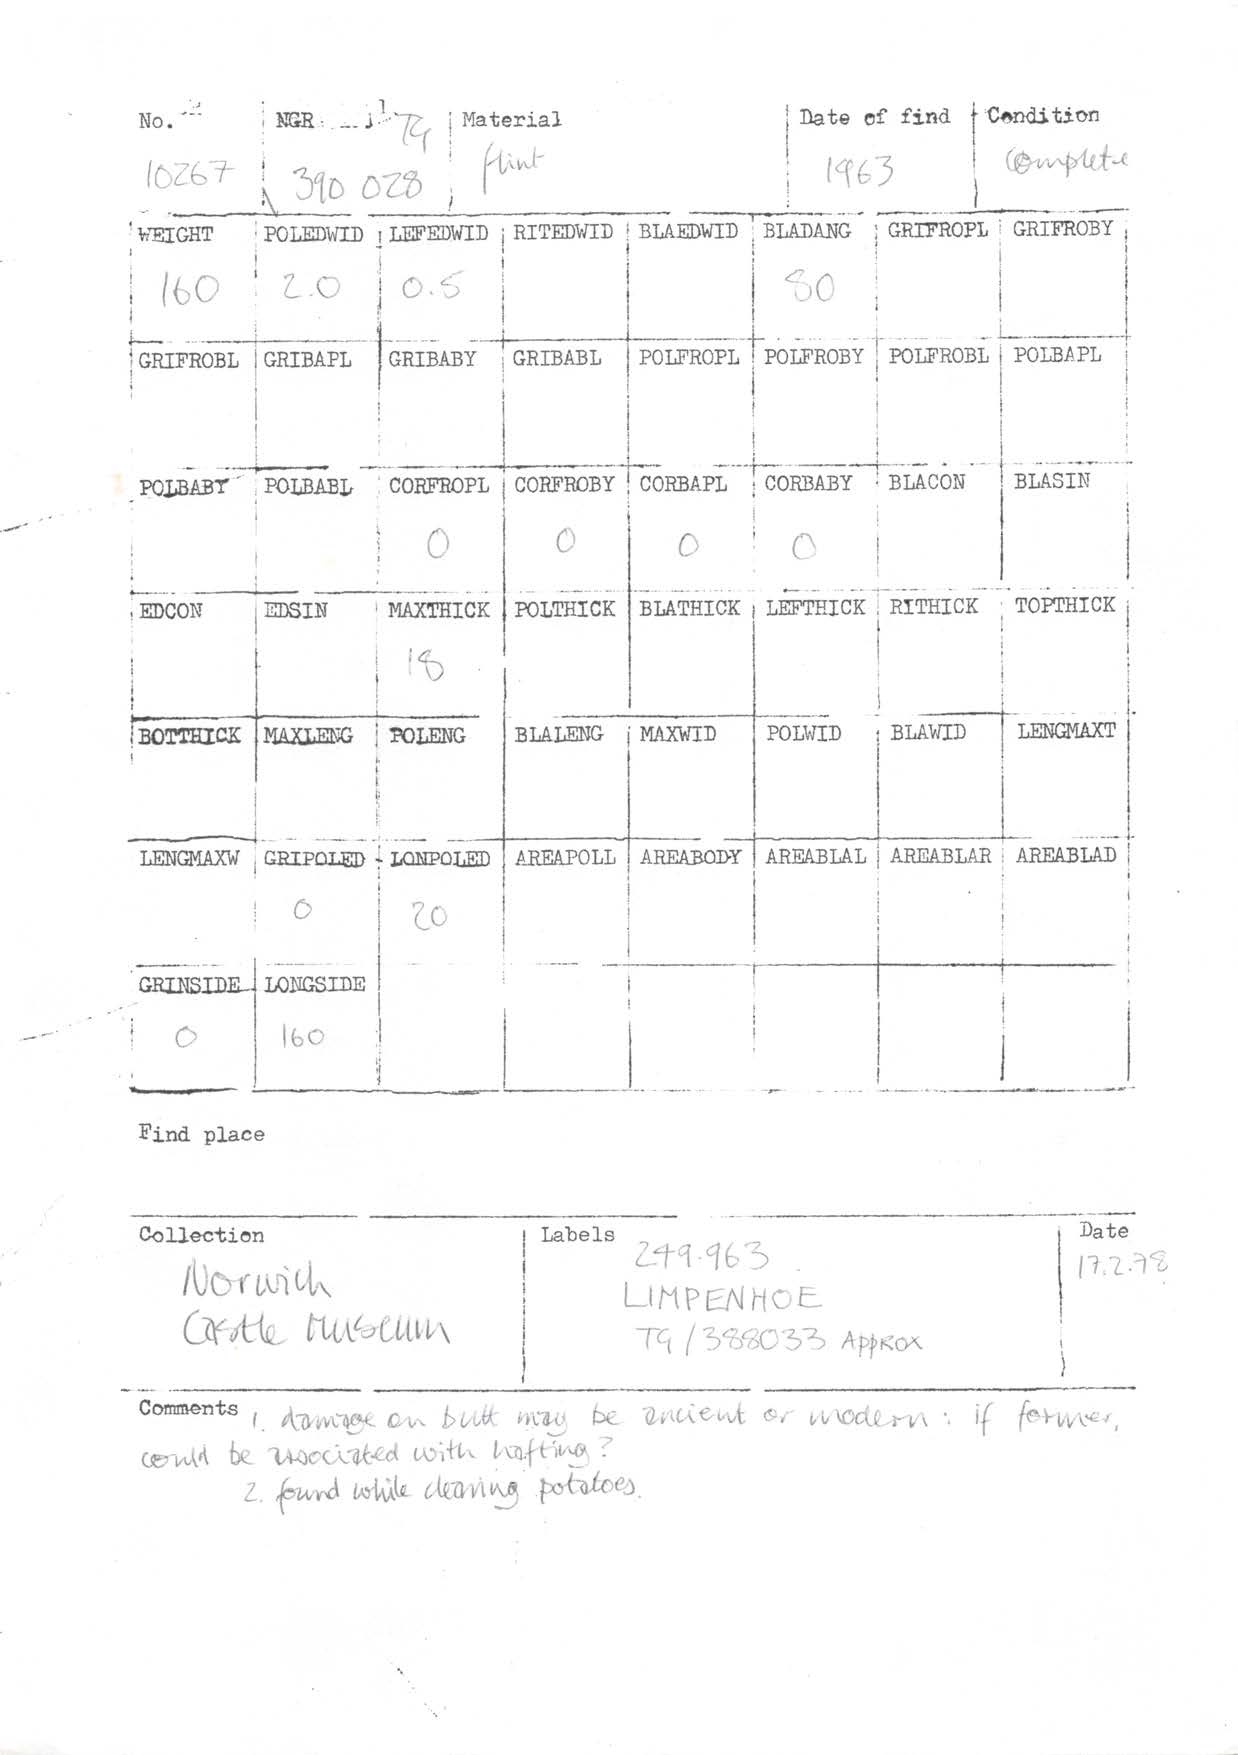 No. NGR TG Material Date of find Condition
10267 390 028 flint 1963 complete
WEIGHT POLEDWID LEFEDWID RITEDWID BLAEDWID BLADANG GRIFROPL GRIFROBY
160 2.0 0.5 80
GRIFROBL GRIBAPL GRIBABY GRIBABL POLFROPL POLFROBY POLFROBL POLBAPL
POLBABY POLBABL CORFROPL CORFROBY CORBAPL CORBABY BLACON BLASIN
0 0 0 0
EDCON EDSIN MAXTHICK POLTHICK BLATHICK LEFTHICK RITHICK TOPTHICK
18
BOTTHICK MAXLENG POLENG BLALENG MAXWID POLWID BLAWID LENGMAXT
LENGMAXW GRIPOLED LONPOLED AREAPOLL AREABODY AREABLAL AREABLAR AREABLAD
0 20
GRINSIDE LONGSIDE
0 160
Find place
Collection Labels Date
Norwich
Castle Museum
249.963
LIMPENHOE
TG/388033 Approx
17.2.78
Comments 1. damage on butt may be ancient or modern: if former,
could be associated with hafting?
2. found while clearing potatoes.